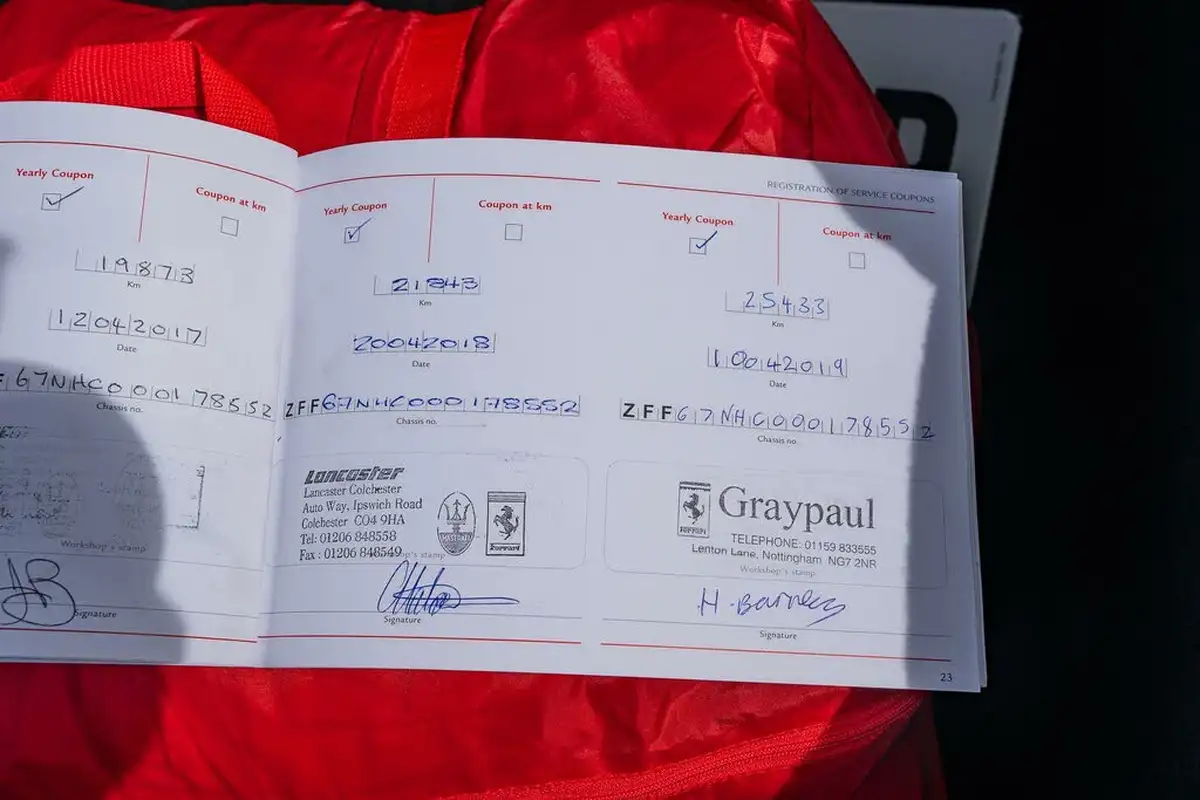 REGISTRATION OF SERVICE COUPONS
Yearly Coupon
Coupon at km
19873
Km
12042017
Date
F67NHC0001 78552
Chassis no.
Workshop's stamp
AB
Signature
Yearly Coupon
Coupon at km
21843
Km
20042018
Date
ZFF67NHC000178552
Chassis no.
Lancaster
Lancaster Colchester
Auto Way, Ipswich Road
Colchester CO4 9HA
Tel: 01206 848558
Fax : 01206 848549
MASERATI
Ferrari
Signature
Yearly Coupon
Coupon at km
25433
Km
10042019
Date
ZFF67NHC000178552
Chassis no.
Ferrari
Graypaul
TELEPHONE: 01159 833555
Lenton Lane, Nottingham NG7 2NR
Workshop's stamp
H. Barness
Signature
23